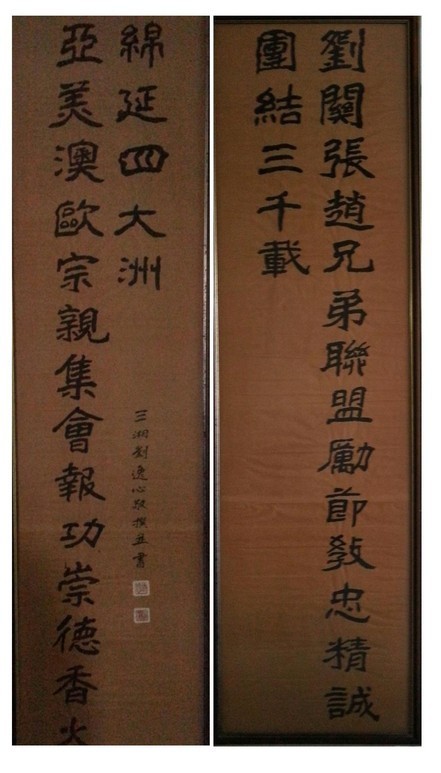 劉關張趙兄弟聯盟勵節教忠精誠
團結三千載
亞美澳歐宗親集會報功崇德香火
綿延四大洲
三湘劉逸心敬撰並書